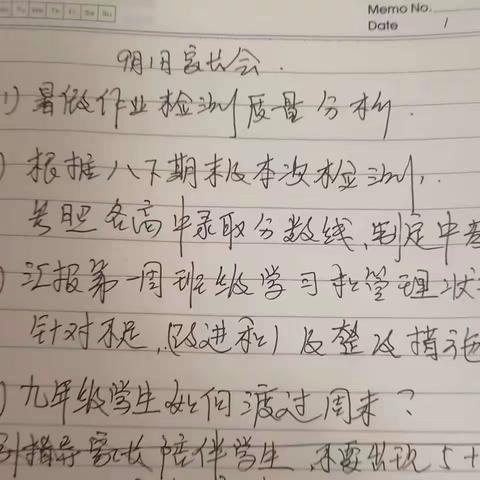 Tu We Th Fr Sa Su
Memo No.
Date /
9月1日家长会.
1) 暑假作业检测质量分析.
) 根据八下期末及本次检测,
参照各高中录取分数线,制定中考
) 汇报第一周班级学习和管理状
针对不足,(改进和)及整改措施
) 九年级学生如何渡过周末?
指导家长陪伴学生,不要出现5+